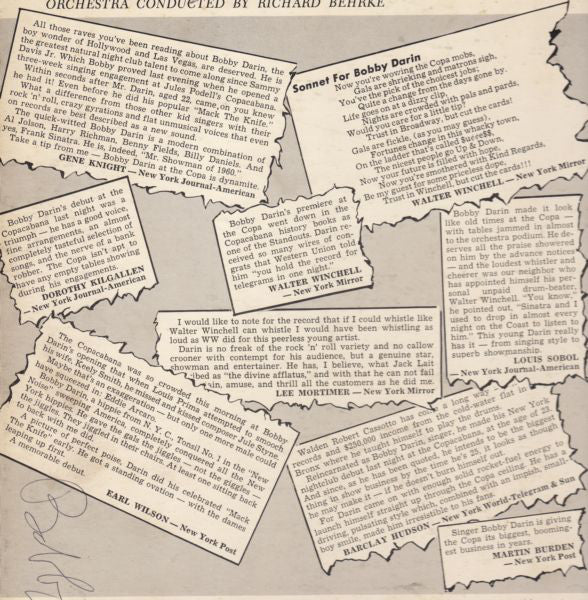 ORCHESTRA CONDUCTED BY RICHARD BEHRKE
All those raves you've been reading about Bobby Darin, the
boy wonder of Hollywood and Las Vegas, are deserved. He is
the greatest natural night club talent to come along since Sammy
Davis Jr. Which Bobby proved last evening when he opened a
three-week singing engagement at Jules Podell's Copacabana.
Within seconds after Mr. Darin, aged 22, came on you knew
he had it! Even before he did his popular "Mack The Knife."
What a difference from those other kid singers with their
rock 'n' roll, crazy gyrations and flat unmusical voices that even
on records are best described as a new sound.
The quick-witted Bobby Darin is a modern combination of
Al Jolson, Harry Richman, Benny Fields, Billy Daniels. And
yes, Frank Sinatra. He is, indeed, "Mr. Showman of 1960."
Take a tip from me — Bobby Darin at the Copa is dynamite.
GENE KNIGHT — New York Journal-American
Sonnet For Bobby Darin
Now you're wowing the Copa mobs,
Gals are shrieking and matrons sigh,
You've the pick of the choicest jobs;
Quite a change from the days gone by.
Life goes on at a dizzy clip,
Nights are crowded with pals and pards,
Would you care for a little tip?
Trust in Broadway, but cut the cards!
Gals are fickle, (as you may guess),
Fortunes change in this whacky town,
On the ladder that's called $ucce$$,
The nicest people go Up & Down.
Now your future is filled with Kind Regards,
Now you're smothered with
Be my guest for some priceless dope,
Trust in Winchell, but cut the cards!!!
WALTER WINCHELL — New York Mirror
Bobby Darin's debut at the
Copacabana last night was a
triumph — he has a good voice,
fine arrangements, an almost
completely tasteful selection of
songs, and the nerve of a bank
robber. The Copa isn't apt to
have any empty tables showing
during his engagements.
DOROTHY KILGALLEN
— New York Journal-American
Bobby Darin's premiere at
the Copa went down in the
Copacabana history books as
one of the Standouts. Darin re-
ceived so many wires of con-
grats that Western Union told
him "you hold the record for
telegrams in one night."
WALTER WINCHELL
— New York Mirror
Bobby Darin made it look
like old times at the Copa —
with tables jammed in almost
to the orchestra podium. He de-
serves all the praise showered
on him by the advance notices
— and the loudest whistler and
cheerer was our neighbor who
has appointed himself his per-
sonal unpaid drum-beater,
Walter Winchell. "You know,"
he pointed out, "Sinatra and I
used to drop in almost every
night on the Coast to listen to
him." This young Darin really
has it — from singing style to
superb showmanship.
LOUIS SOBOL
— New York Journal-American
I would like to note for the record that if I could whistle like
Walter Winchell can whistle I would have been whistling as
loud as WW did for this peerless young artist.
Darin is no freak of the rock 'n' roll variety and no callow
crooner with contempt for his audience, but a genuine star,
showman and entertainer. He has, I believe, what Jack Lait
ibed as "the divine afflatus," and with that he can not fail
in, amuse, and thrill all the customers as he did me.
LEE MORTIMER — New York Mirror
The Copacabana was so crowded this morning at Bobby
Darin's opening that when Louis Prima attempted to smooch
his wife, Keely Smith, he missed and kissed composer Jule Styne.
Maybe that's an exaggeration — but only one more male could
have squeezed in: Eddie Arcaro.
Bobby Darin, a hippie from N. Y. C. Tonsil No. 1 in the "New
Noise" sweeping America, completely conquered all the New
York hippies. He gave the gals the jigglies — or the giggles —
the edgies. They jiggled in their chairs. At least one sitting back
to back with me did.
A picture of perfect poise, Darin did his celebrated "Mack
The Knife" early. He got a standing ovation — with the dames
leaping up first.
A memorable debut.
EARL WILSON — New York Post
Walden Robert Cassotto has come a long way
records and $250,000 income from the cold-water flat in
Bronx where he taught himself to play the drums.
Reincarnated as Bobby Darin, singer, he made his New York
nightclub debut last night at the Copacabana, at the age of 23.
And since, as he has been quoted, he intends to be the biggest
thing in show business by the time he's 25, it looks as though
he may make it — if he doesn't burn himself out.
For Darin came on with enough solid rocket-fuel energy to
launch himself straight up through the Copa ceiling. He has a
driving, pulsating style which, combined with an impish, small-
boy smile, made him irresistible to his fans.
BARCLAY HUDSON — New York World-Telegram & Sun
Singer Bobby Darin is giving
the Copa its biggest, boom-
est business in years.
MARTIN BURDEN
— New York Post